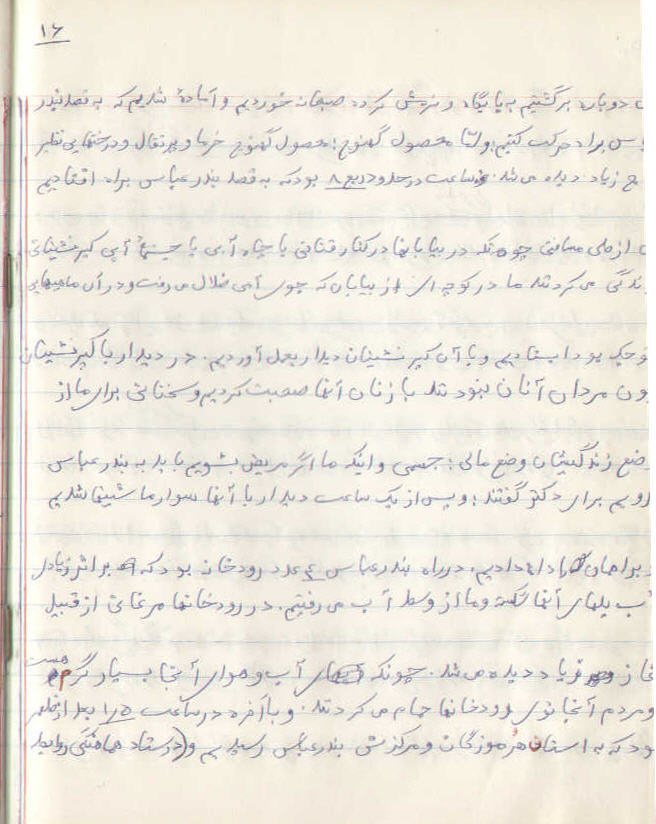 ۱۶
دوباره برگشتیم به پایگاه و نرمش کرده صبحانه خوردیم و آماده شدیم که به قصد بندر
براه حرکت کنیم؛ ولتا محصول کهنوج؛ محصول کهنوج خرما و پرتقال و درختهایی نظیر
زیاد دیده می‌شد. ساعت در حدود ربع ۸ بود که به قصد بندرعباس براه افتادیم
از طی مسافتی چونکه در بیابانها در کنار قناتی یا چاه آبی یا چشمهٔ آبی کپرنشینانی
زندگی می‌کردند ما در کوچه‌ای از بیابان که جوی آبی ذلال می‌رفت و در آن ماهیهایی
کوچک بود ایستادیم و با آن کپرنشینان دیدار بعمل آوردیم. در دیدار با کپرنشینان
چون مردان آنان نبودند با زنان آنها صحبت کردیم و سخنانی برای ما از
وضع زندگیشان وضع مالی؛ جسمی و اینکه ما اگر مریض بشویم باید به بندرعباس
رویم برای دکتر گفتند؛ و پس از یک ساعت دیدار با آنها سوار ماشینها شدیم
براهمان ادامه دادیم. در راه بندرعباس ۴ عدد رودخانه بود که بر اثر زیادی
آب پلهای آنها شکسته و ما از وسط آب می‌رفتیم. در رودخانها مرغانی از قبیل
غاز و غیره زیاد دیده می‌شد. چونکه آب و هوای آنجا بسیار گرم هست
و مردم آنجا توی رودخانها حمام می‌کردند. و بالأخره در ساعت ۱/۵ بعد از ظهر
بود که به استان هرموزگان و مرکزش بندرعباس رسیدیم و (در ستاد هماهنگی روابط